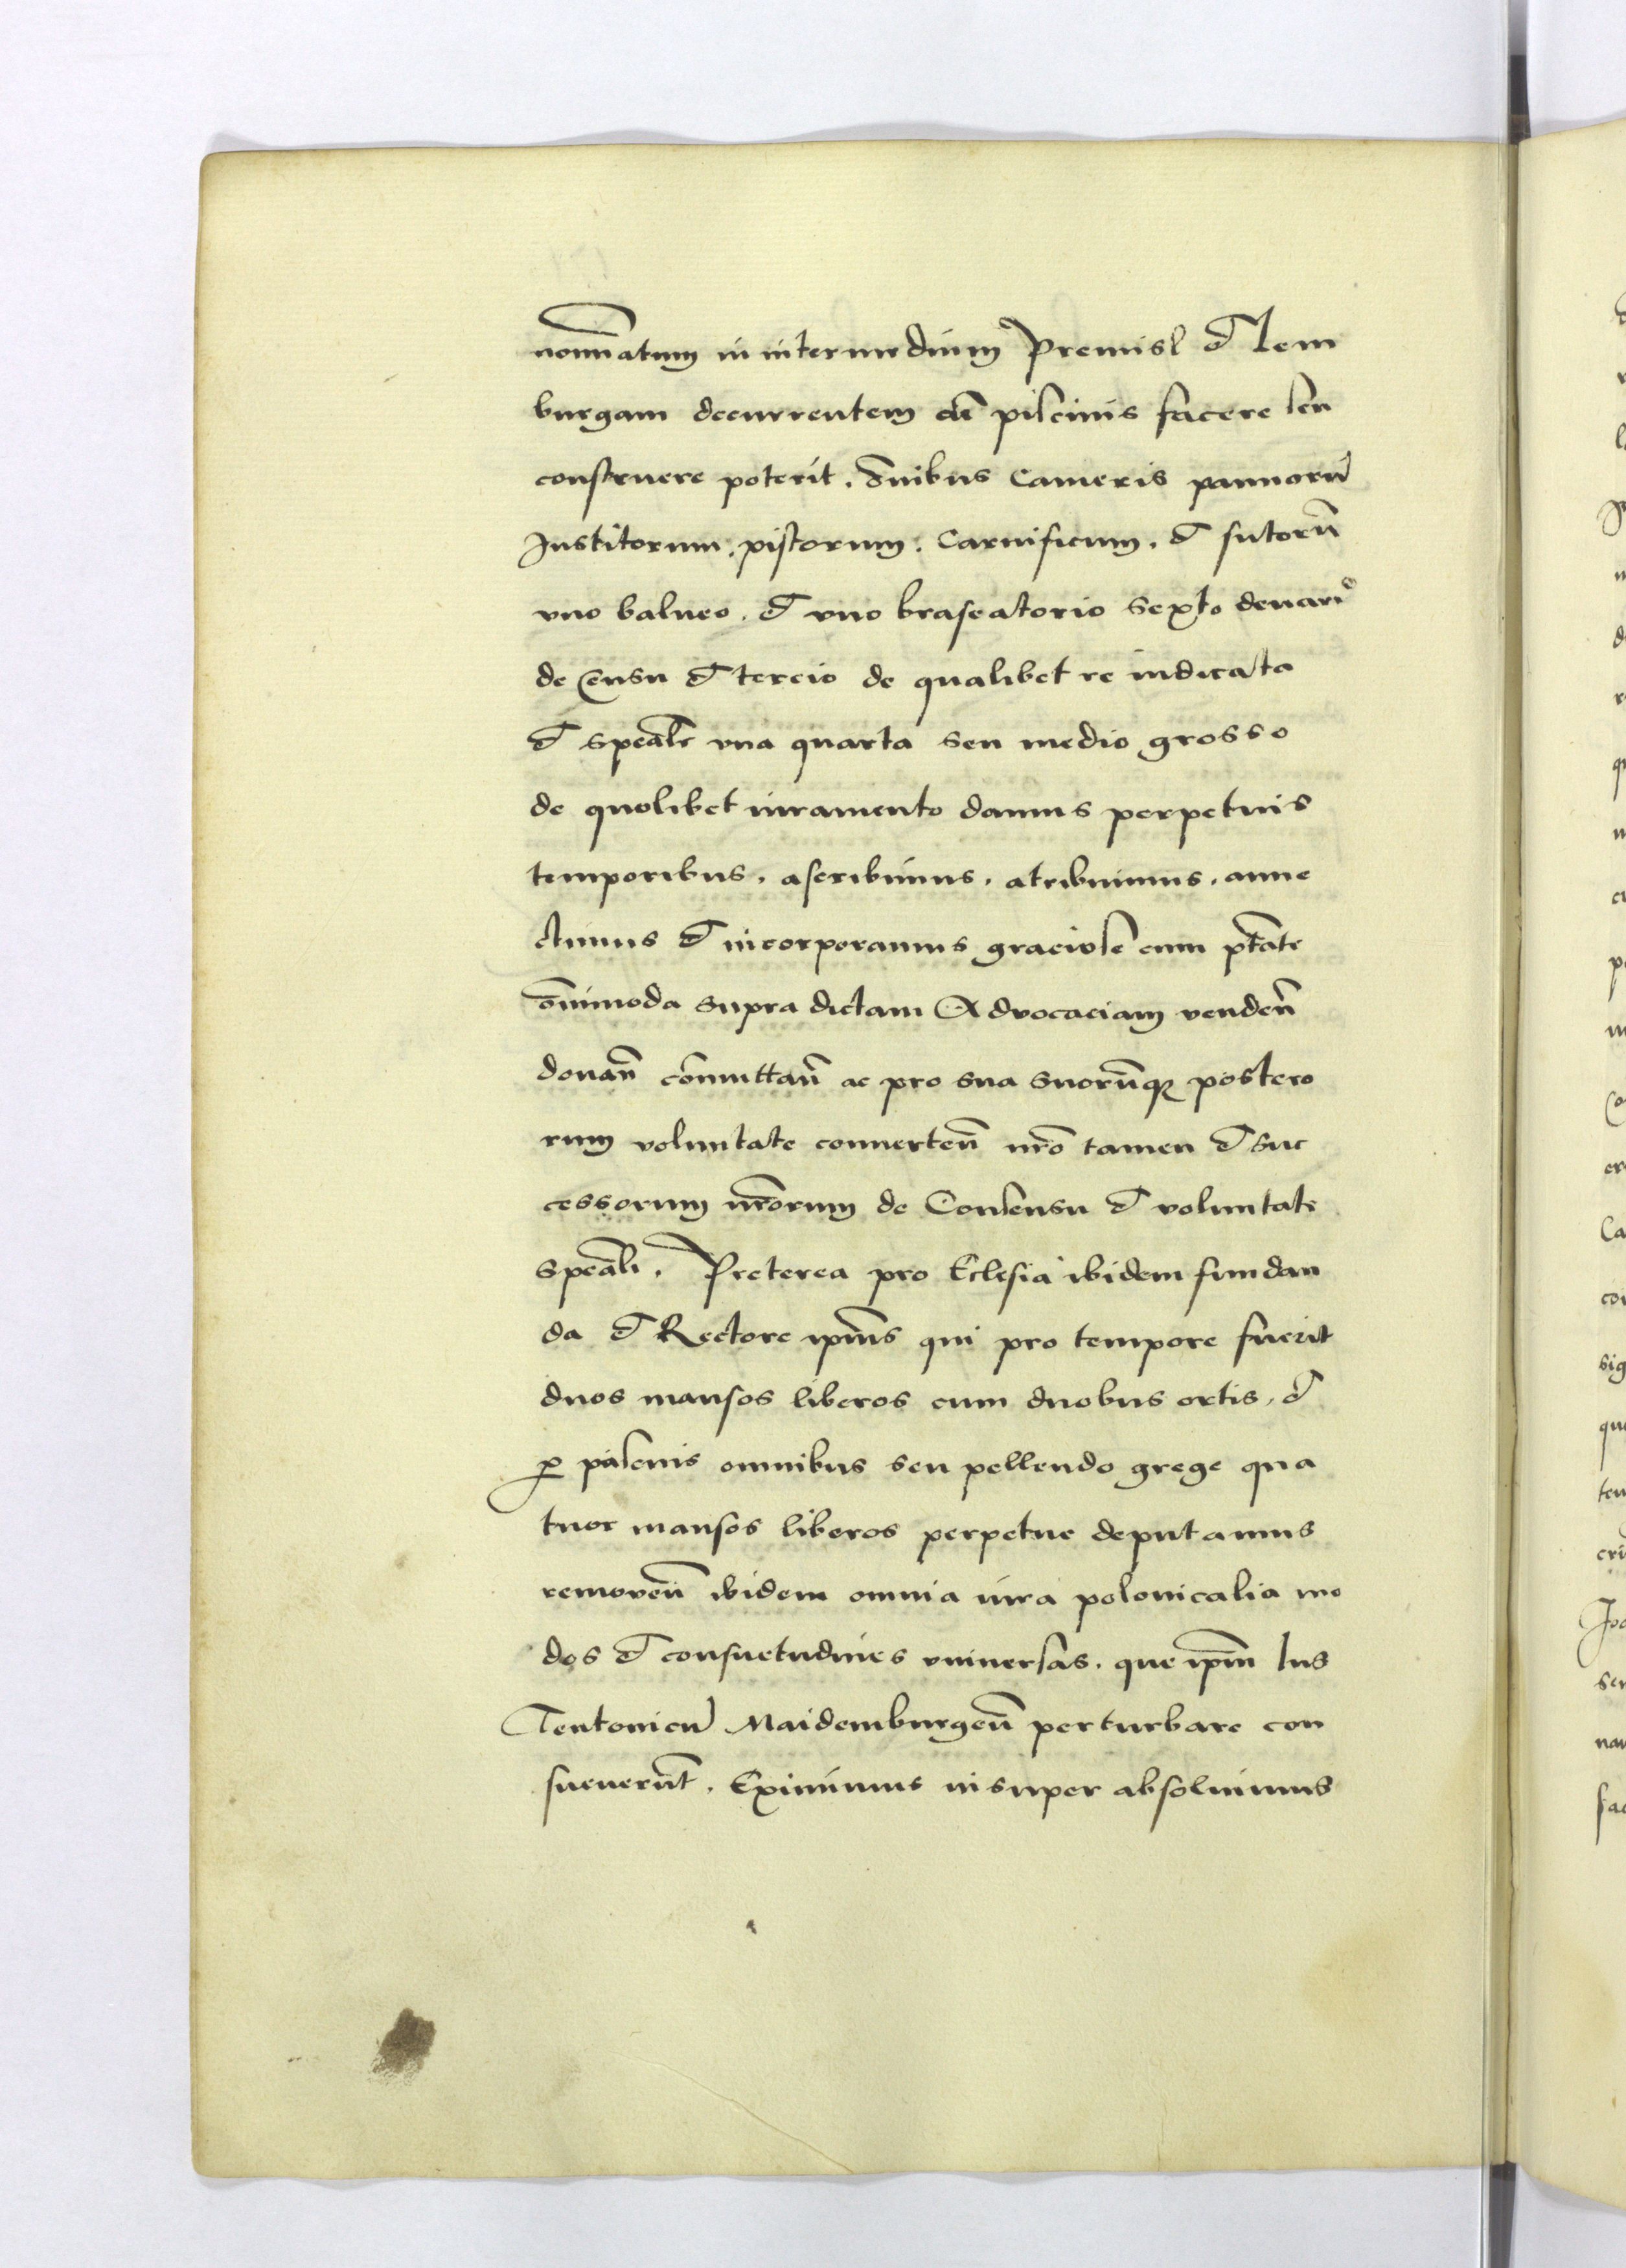 nomīatum in intermedium Premisl et Lem
burgam decurrentem cū piscinis facere seu
construere poterit. Ōnibus Cameris pannorū
Institorum, pistorum, Carnificum, et sutorū
vno balneo, et vno braseatorio Sexto denario
de Censu et tercio de qualibet re iudicata
et spealr̄ vna quarta seu medio grosso
de quolibet iuramento damus perpetuis
temporibus, ascribimus, atribuimus, anne
ctimus et incorporamus graciose cum ptāte
ōnimoda supra dictam Advocaciam venden̄
donan̄ cōmuttan̄ ac pro sua suorūque postero
rum voluntate conuerten̄ nr̄o tamen et suc
cessorum nr̄orum de Consensu et voluntate
speāli. Preterea pro Eclesia ibidem fundan
da et Rectore ipīus qui pro tempore fuerit
duos mansos liberos cum duobus ortis, et
pro pascuis omnibus seu pellendo grege qua
tuor mansos liberos perpetue deputamus
remouen̄ ibidem omnia iura polonicalia mo
dos et consuetudines vniuersas, que ipm̄ Ius
Teutonicū Maidemburgen̄ perturbare con
sueuerūt. Eximimus insuper absoluimus